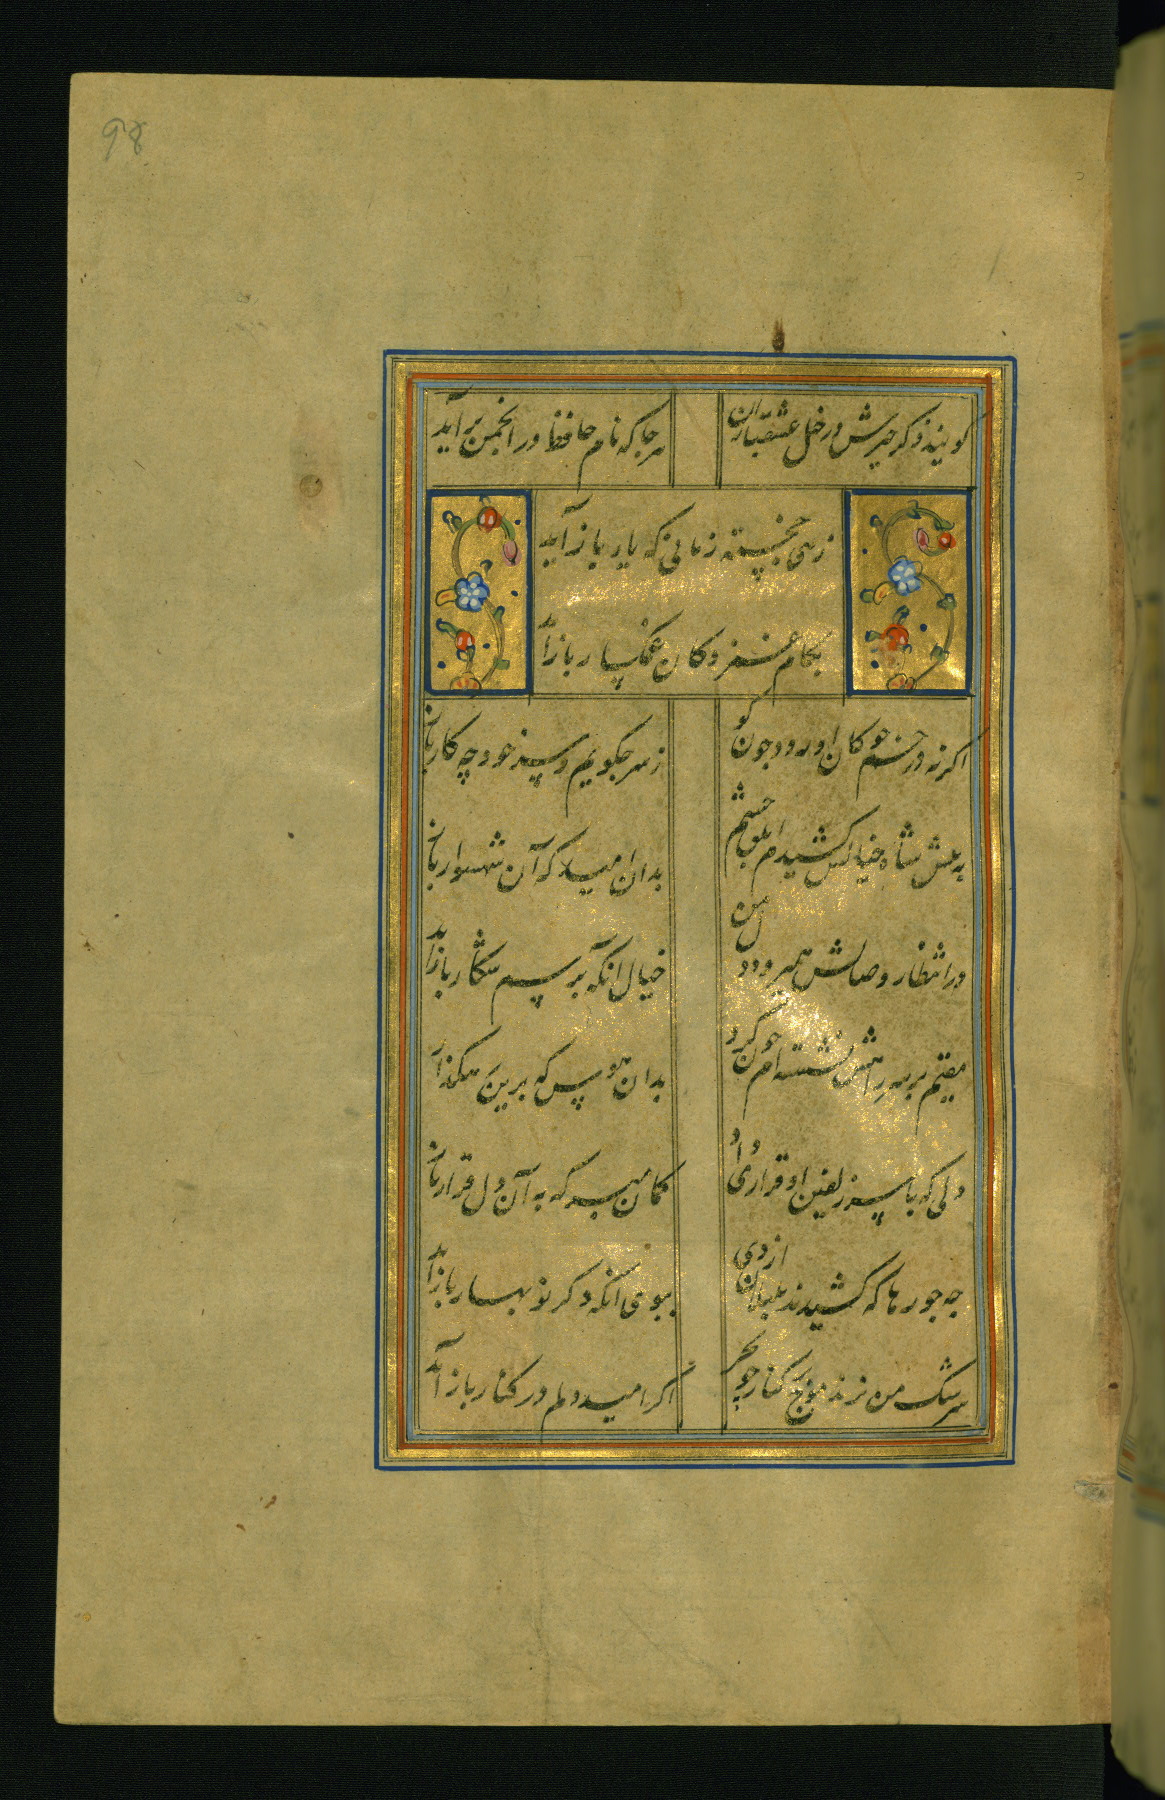 98
کویند ذکر خیرش در خیل عشقبازان
هر جا که نام حافظ در انجمن برآید
زهی خجسته زمانی که یار بازآید
بکام غمزدکان غمکسار بازآید
اکر نه در خم چوکان او رود چون کو
ز سر چکویم و سر خود چه کار باز
به پیش شاه خیالش کشیدم ابلق چشم
بدان امید که آن شهسوار باز
در انتظار وصالش همیرود دل من
خیال آنکه برسم شکار بازآید
مقیم بر سر راهش نشسته ام چون کرد
بدان هوس که برین رهکذار
دلی که با سر زلفین او قراری داد
کمان مبر که به آن دل قرار باز
چه جورها که کشیدند بلبلان از دی
ببوی آنکه دکر نوبهار بازآید
سرشک من نزند موج بر کنار چو بحر
اکر امید دلم در کنار بازآید